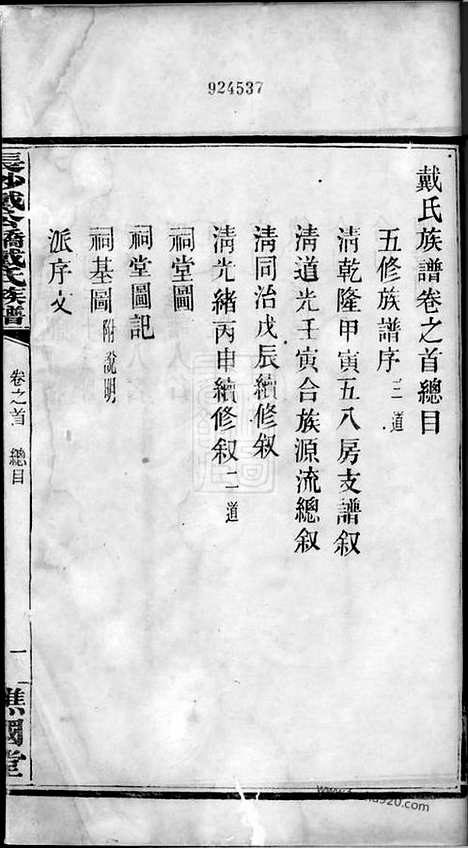 924537
戴氏族譜卷之首總目
五修族譜序 三道
清乾隆甲寅五八房支譜叙
清道光壬寅合族源流總叙
清同治戊辰續修叙
清光緒丙申續修叙 二道
祠堂圖
祠堂圖記
祠基圖 附說明
派序文
長沙戴公橋戴氏族譜
卷之首 總目
一
譙國堂